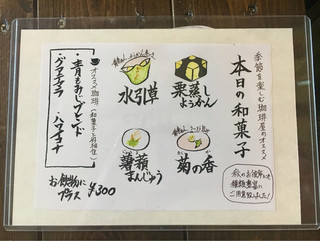 季節を楽しむ珈琲屋のオススメ
本日の和菓子
秋のお彼岸
ご用意致しました!
栗蒸し
ようかん
水引草
菊の香
薯蕷
まんじゅう
お飲物に
プラス
¥300
オススメ珈琲(和菓子と好相性)
・青もみじブレンド
・グアテマラ